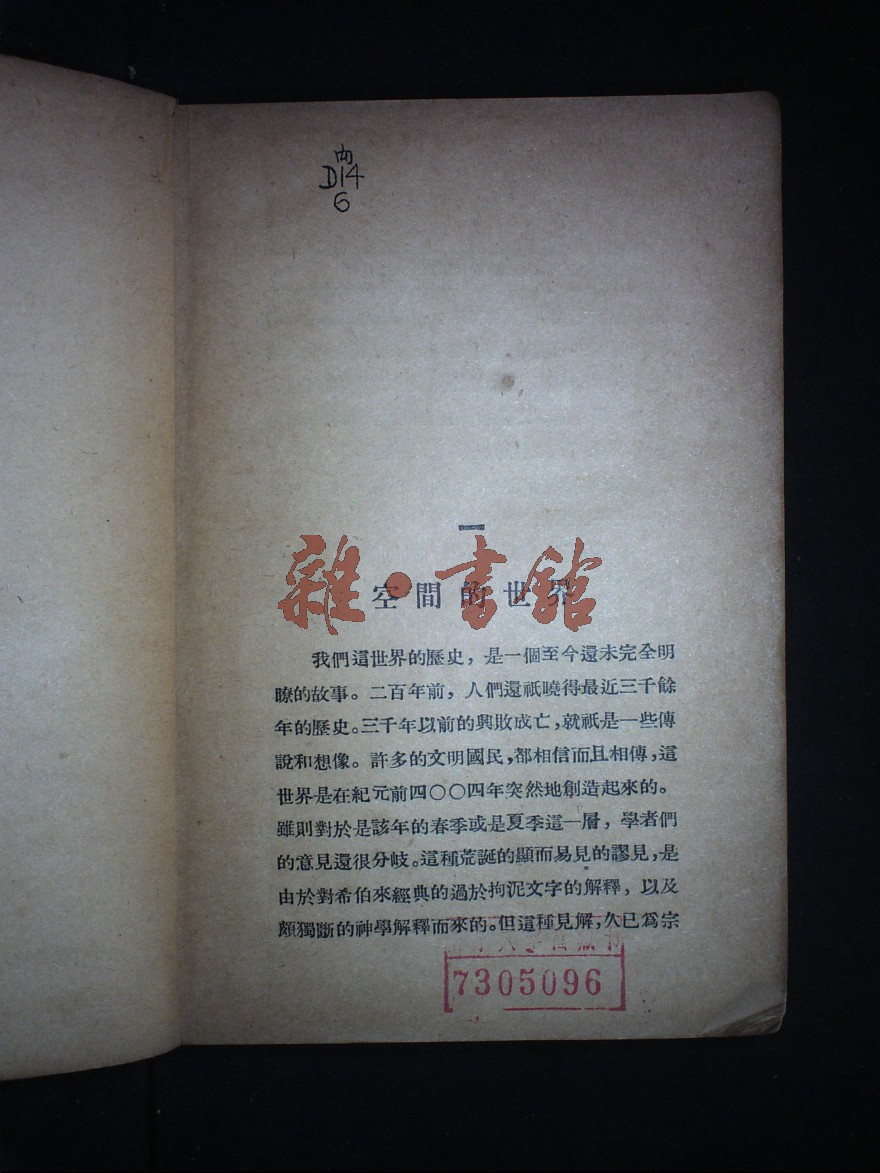 内
D14
6
一
雜·書館
空間的世界
我們這世界的歷史，是一個至今還未完全明
瞭的故事。二百年前，人們還祇曉得最近三千餘
年的歷史。三千年以前的興敗成亡，就祇是一些傳
說和想像。許多的文明國民，都相信而且相傳，這
世界是在紀元前四〇〇四年突然地創造起來的。
雖則對於是該年的春季或是夏季這一層，學者們
的意見還很分岐。這種荒誕的顯而易見的謬見，是
由於對希伯來經典的過於拘泥文字的解釋，以及
頗獨斷的神學解釋而來的。但這種見解，久已爲宗
7305096